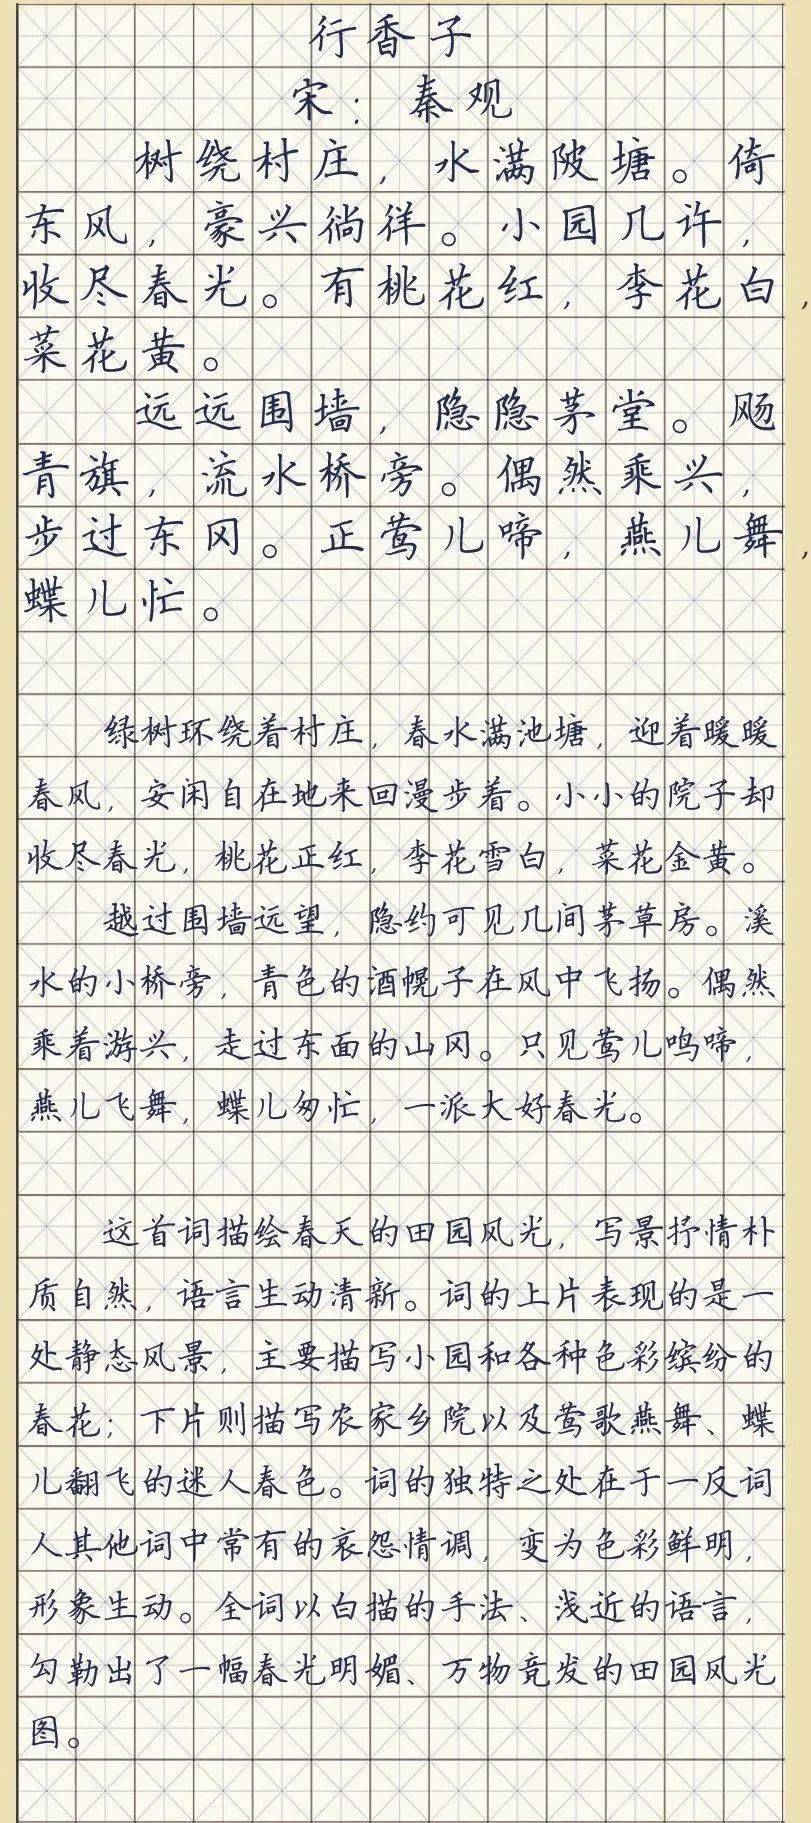 行香子
宋：秦观
树绕村庄，水满陂塘。倚
东风，豪兴徜徉。小园几许，
收尽春光。有桃花红，李花白，
菜花黄。
远远围墙，隐隐茅堂。飏
青旗，流水桥旁。偶然乘兴，
步过东冈。正莺儿啼，燕儿舞，
蝶儿忙。
绿树环绕着村庄，春水满池塘，迎着暖暖
春风，安闲自在地来回漫步着。小小的院子却
收尽春光，桃花正红，李花雪白，菜花金黄。
越过围墙远望，隐约可见几间茅草房。溪
水的小桥旁，青色的酒幌子在风中飞扬。偶然
乘着游兴，走过东面的山冈。只见莺儿鸣啼，
燕儿飞舞，蝶儿匆忙，一派大好春光。
这首词描绘春天的田园风光，写景抒情朴
质自然，语言生动清新。词的上片表现的是一
处静态风景，主要描写小园和各种色彩缤纷的
春花；下片则描写农家乡院以及莺歌燕舞、蝶
儿翻飞的迷人春色。词的独特之处在于一反词
人其他词中常有的哀怨情调，变为色彩鲜明，
形象生动。全词以白描的手法、浅近的语言，
勾勒出了一幅春光明媚、万物竞发的田园风光
图。